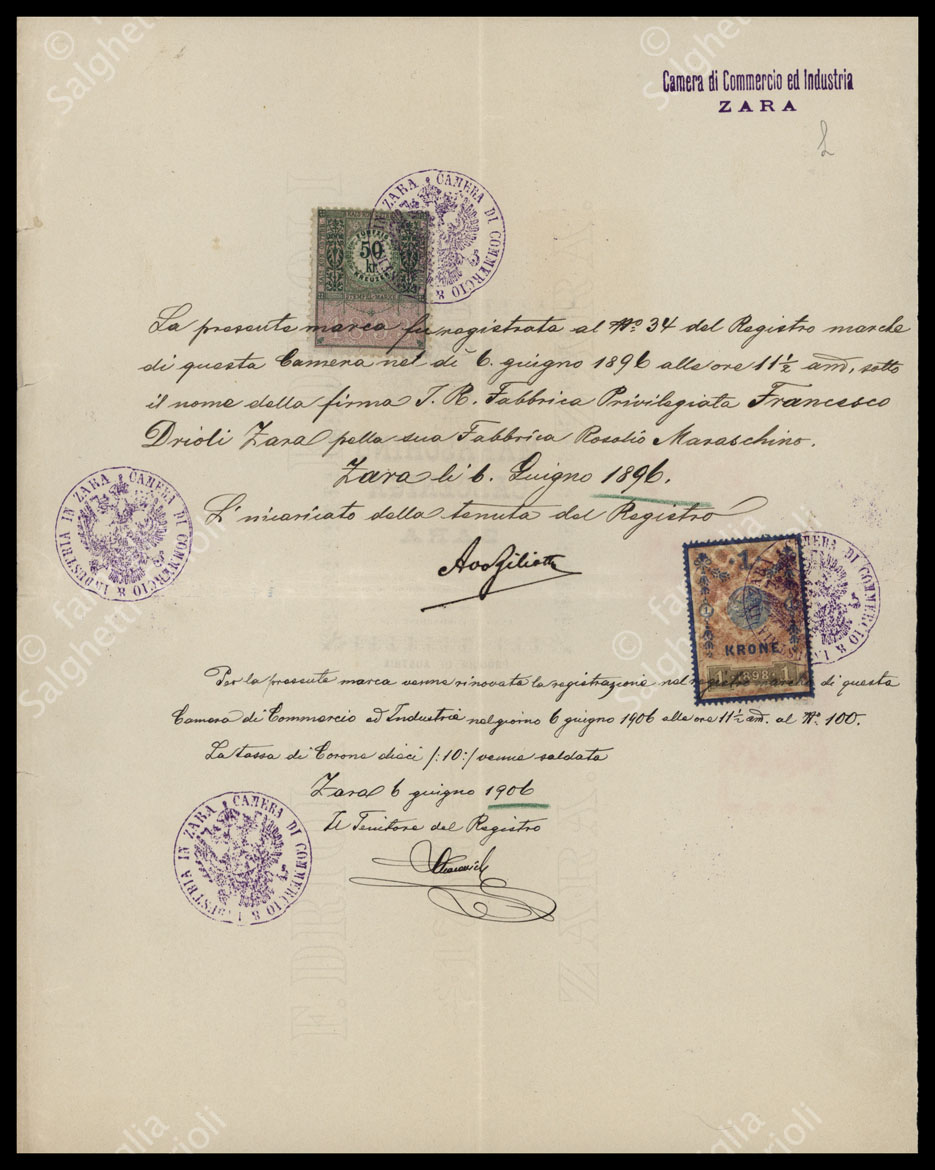 Camera di Commercio ed Industria
ZARA
CAMERA DI COMMERCIO & INDUSTRIA IN ZARA
50
kr.
KREUZER
STEMPEL MARKE
La presente marca fu registrata al Nº 34 del Registro marche
di questa Camera nel dì 6. giugno 1896 alle ore 11½ am, sotto
il nome della firma I. R. Fabbrica Privilegiata Francesco
Drioli Zara pella sua Fabbrica Rosolio Maraschino.
Zara li 6. Giugno 1896.
L'incaricato della tenuta del Registro
CAMERA DI COMMERCIO & INDUSTRIA IN ZARA
CAMERA DI COMMERCIO &
1
KRONE
1 1898 1
Per la presente marca venne rinovata la registrazione nel registro marche di questa
Camera di Commercio ed Industria nel giorno 6 giugno 1906 alle ore 11½ am. al Nº 100.
La tassa di Corone dieci /:10:/ venne saldata
Zara 6 giugno 1906
Il Tenitore del Registro
CAMERA DI COMMERCIO & INDUSTRIA IN ZARA
F. DRIOLI
ZARA.
© Salghetti
© Salghetti
© famiglia
Salghetti Drioli
© famiglia
Salghetti Drioli